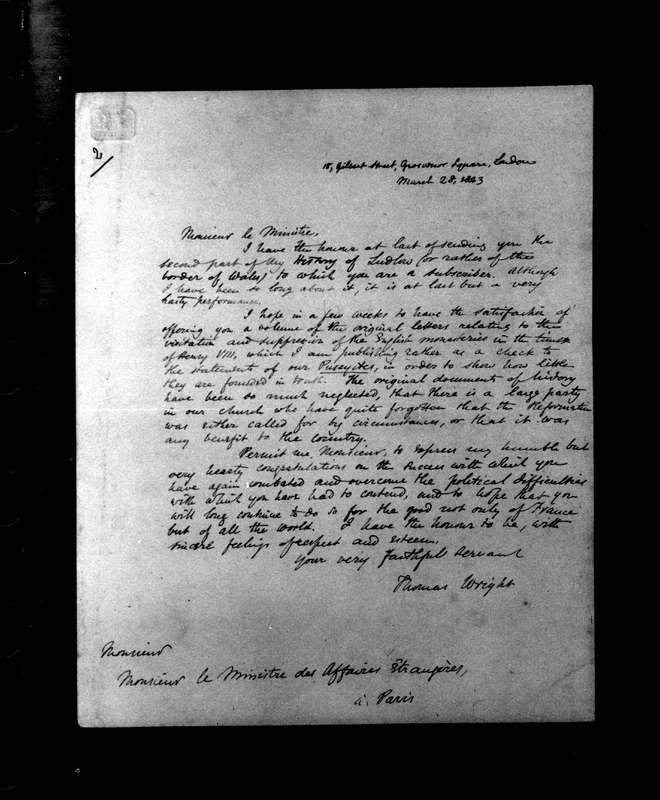 2/
18, Gilbert Street, Grosvenor Square, London
March 28, 1843
Monsieur le Ministre,
I have the honour at last of sending you the
second part of my History of Ludlow (or rather of the
border of Wales) to which you are a subscriber. Although
I have been so long about it, it is at last but a very
hasty performance.
I hope in a few weeks to have the satisfaction of
offering you a volume of the original letters relating to the
visitation and suppression of the English monasteries in the time
of Henry VIII, which I am publishing rather as a check to
the statements of our Puseyites, in order to show how little
they are founded in truth. The original documents of history
have been so much neglected, that there is a large party
in our church who have quite forgotten that the Reformation
was either called for by circumstances, or that it was
any benefit to the country.
Permit me, Monsieur, to express my humble but
very hearty congratulations on the success with which you
have again combated and overcome the political difficulties
with which you have had to contend, and to hope that you
will long continue to do so for the good not only of France
but of all the world. I have the honour to be, with
sincere feelings of respect and esteem,
Your very faithful servant
Thomas Wright
Monsieur
Monsieur le Ministre des Affaires Étrangères,
à Paris